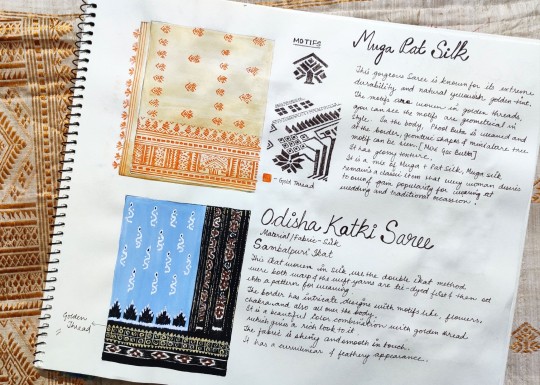 MOTIFS
Muga Pat Silk
This gorgeous Saree is known for its extreme
durability and natural yellowish golden-tint.
The motifs are woven in golden threads,
you can see the motifs are geometrical in
style. In the body, Phool Buta is weaved and
at the border, geometric shapes of miniature tree
motif can be seen.
It has glossy texture.
It is a mix of Muga & Pat Silk, Muga silk
remains a classic item that every woman desires
to own. It gain popularity for wearing at
wedding and traditional occasion.
- Gold Thread
Odisha Katki Saree
Material/Fabric - Silk
Sambalpuri Ikat
This Ikat woven in silk, use the double ikat method
were both warp & the weft yarns are tie-dyed first & then set
into a pattern for weaving.
The border has intricate designs with motifs like, flowers,
chakra and also all over the body.
It is a beautiful color combination with golden thread
which gives a rich look to it.
The fabric is shiny and smooth in touch.
It has a curvilinear & feathery appearance.
Golden
Thread